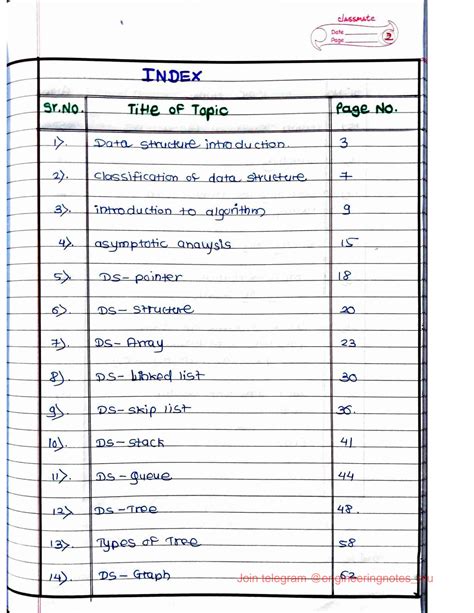 classmate
Date
Page 2
INDEX
Sr.No. Title of Topic Page No.
1). Data structure introduction. 3
2). classification of data structure 7
3). introduction to algorithm 9
4). asymptotic analysis 15
5). DS- pointer 18
6). DS- structure 20
7). DS- Array 23
8). DS- linked list 30
9). DS- skip list 36.
10). DS- stack 41
11). DS- queue 44
12). DS- Tree 48.
13). Types of Tree 58
14). DS- Graph 62
Join telegram @engineeringnotes_